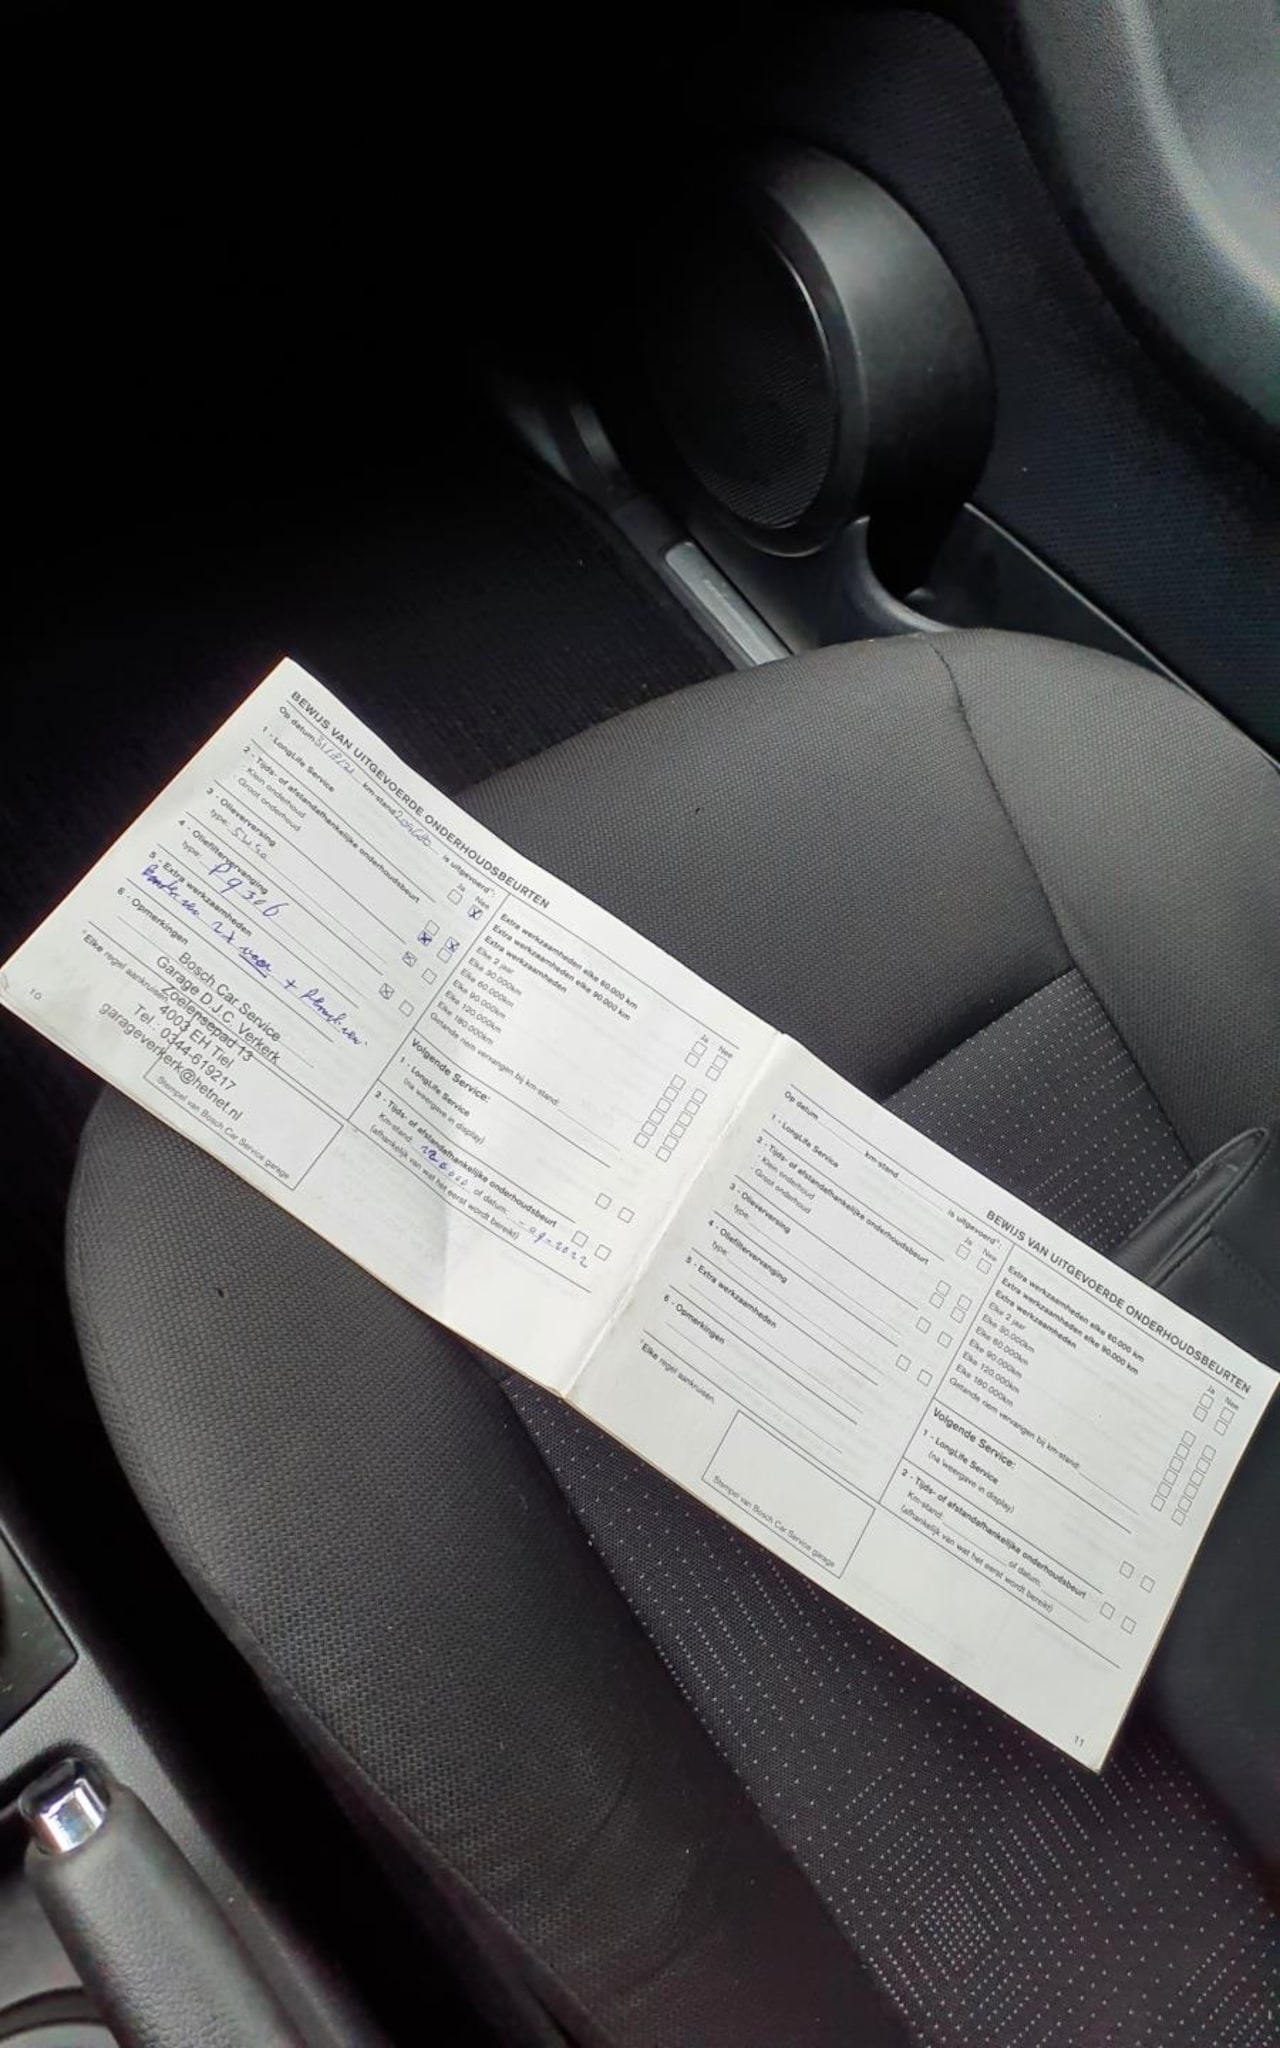 BEWIJS VAN UITGEVOERDE ONDERHOUDSBEURTEN
Op datum km-stand is uitgevoerd*:
Ja Nee
1 - LongLife Service
2 - Tijds- of afstandafhankelijke onderhoudsbeurt
- Klein onderhoud
- Groot onderhoud
3 - Olieverversing
type:
4 - Oliefiltervervanging
type: P9306
5 - Extra werkzaamheden
2x voor +
6 - Opmerkingen
*Elke regel aankruisen.
Bosch Car Service
Garage D.J.C. Verkerk
Zoelensepad 13
4003 EH Tiel
Tel.: 0344-619217
garageverkerk@hetnet.nl
Stempel van Bosch Car Service garage
10
Extra werkzaamheden elke 60.000 km
Extra werkzaamheden elke 90.000 km
Extra werkzaamheden
Ja Nee
Elke 2 jaar
Elke 30.000km
Elke 60.000km
Elke 90.000km
Elke 120.000km
Elke 180.000km
Getande riem vervangen bij km-stand:
Volgende Service:
1 - LongLife Service
(na weergave in display)
2 - Tijds- of afstandafhankelijke onderhoudsbeurt
Km-stand: of datum: 2022
(afhankelijk van wat het eerst wordt bereikt)
BEWIJS VAN UITGEVOERDE ONDERHOUDSBEURTEN
Op datum km-stand is uitgevoerd*:
Ja Nee
1 - LongLife Service
2 - Tijds- of afstandafhankelijke onderhoudsbeurt
- Klein onderhoud
- Groot onderhoud
3 - Olieverversing
type:
4 - Oliefiltervervanging
type:
5 - Extra werkzaamheden
6 - Opmerkingen
*Elke regel aankruisen.
Stempel van Bosch Car Service garage
Extra werkzaamheden elke 60.000 km
Extra werkzaamheden elke 90.000 km
Extra werkzaamheden
Ja Nee
Elke 2 jaar
Elke 30.000km
Elke 60.000km
Elke 90.000km
Elke 120.000km
Elke 180.000km
Getande riem vervangen bij km-stand:
Volgende Service:
1 - LongLife Service
(na weergave in display)
2 - Tijds- of afstandafhankelijke onderhoudsbeurt
Km-stand: of datum:
(afhankelijk van wat het eerst wordt bereikt)
11